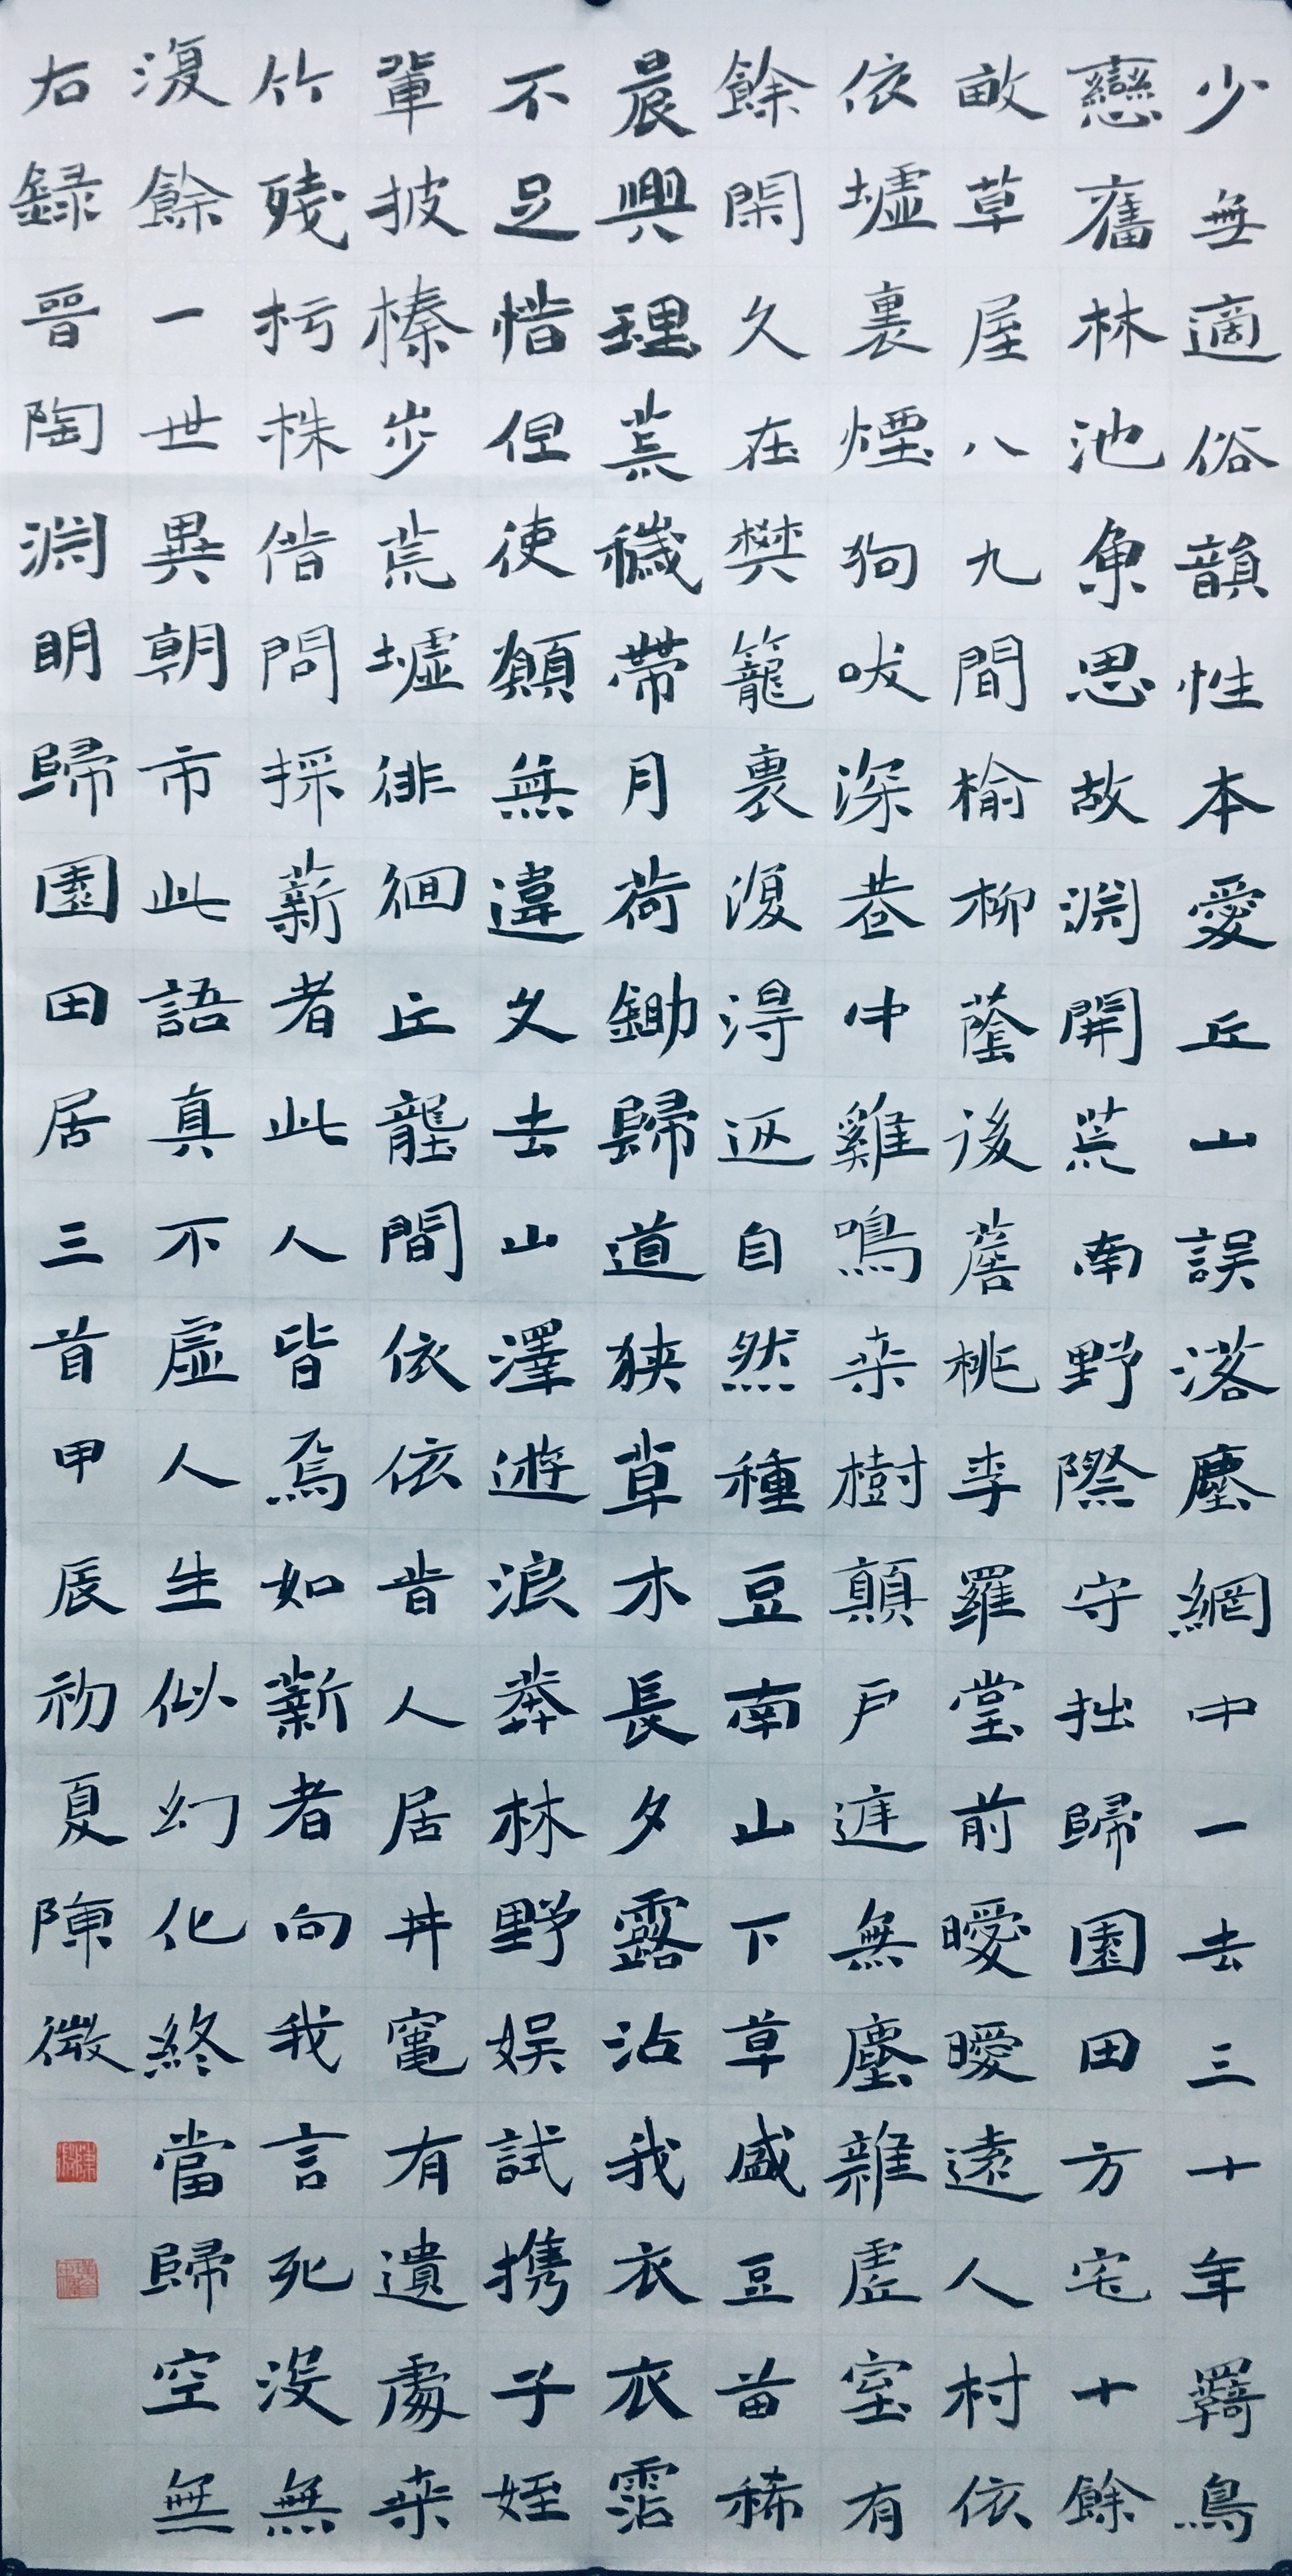 少無適俗韻性本愛丘山誤落塵網中一去三十年羇鳥
戀舊林池魚思故淵開荒南野際守拙歸園田方宅十餘
畝草屋八九間榆柳蔭後簷桃李羅堂前曖曖遠人村依
依墟裏煙狗吠深巷中雞鳴桑樹顛戶庭無塵雜虛室有
餘閑久在樊籠裏復得返自然種豆南山下草盛豆苗稀
晨興理荒穢帶月荷鋤歸道狹草木長夕露沾我衣衣霑
不足惜但使願無違久去山澤遊浪莽林野娛試携子姪
輩披榛步荒墟徘徊丘壟間依依昔人居井竈有遺處桑
竹殘朽株借問採薪者此人皆焉如薪者向我言死沒無
復餘一世異朝市此語真不虛人生似幻化終當歸空無
右録晉陶淵明歸園田居三首甲辰初夏陳微